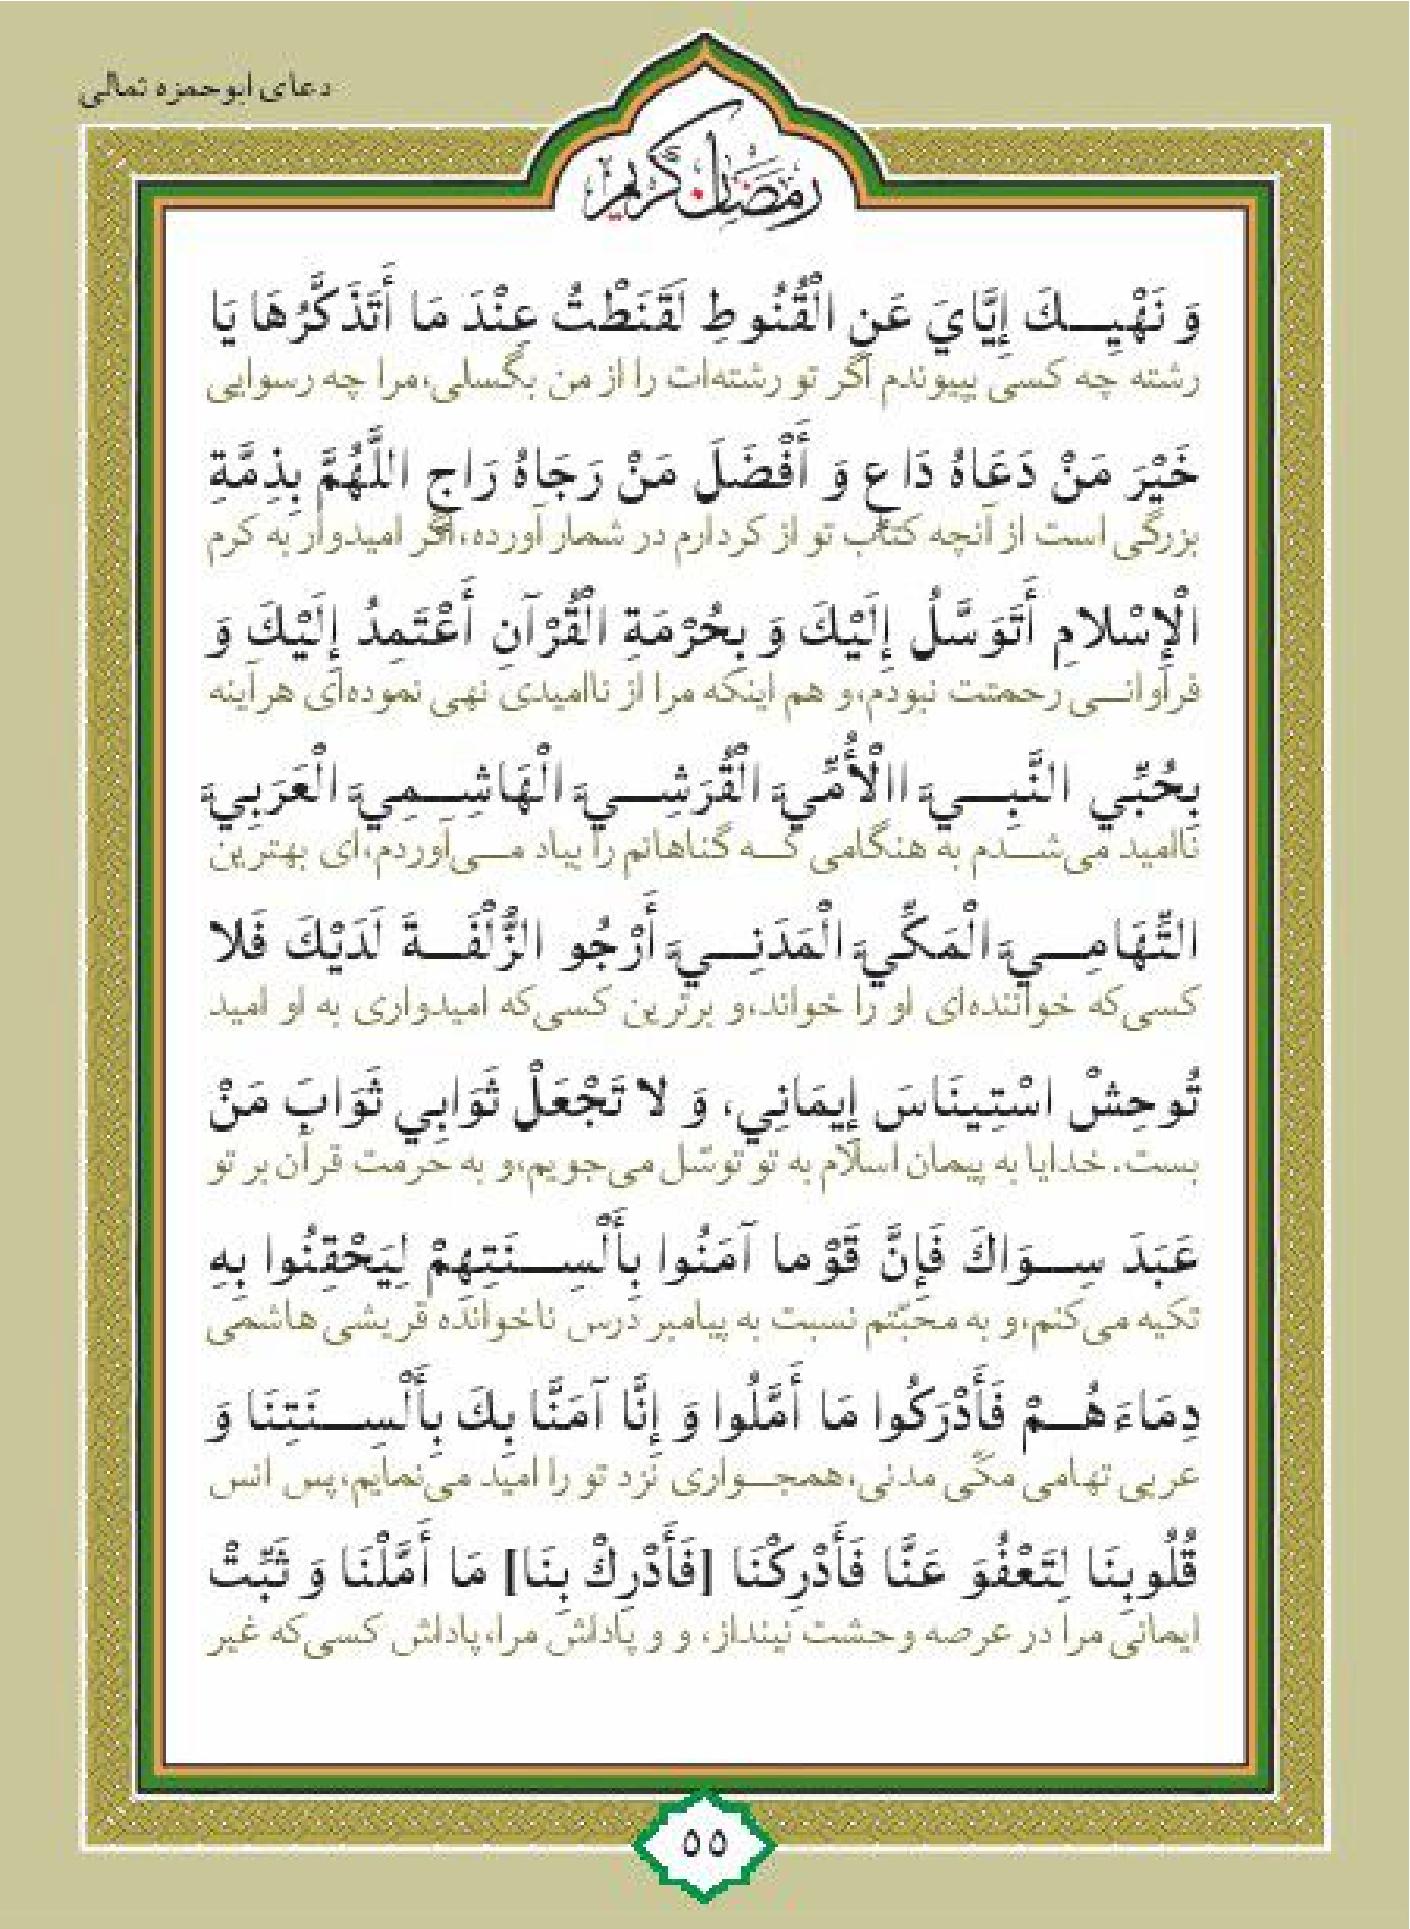 دعای ابوحمزه ثمالی
رمضان کریم
وَ نَهْيِـكَ إِيَّايَ عَنِ الْقُنُوطِ لَقَنَطْتُ عِنْدَ مَا أَتَذَكَّرُهَا يَا
رشته چه کسی بپیوندم اگر تو رشته‌ات را از من بگسلی،مرا چه رسوایی
خَيْرَ مَنْ دَعَاهُ دَاعٍ وَ أَفْضَلَ مَنْ رَجَاهُ رَاجٍ اللَّهُمَّ بِذِمَّةِ
بزرگی است از آنچه کتاب تو از کردارم در شمار آورده،اگر امیدوار به کرم
الْإِسْلامِ أَتَوَسَّلُ إِلَيْكَ وَ بِحُرْمَةِ الْقُرْآنِ أَعْتَمِدُ إِلَيْكَ وَ
فراوانـی رحمتت نبودم،و هم اینکه مرا از ناامیدی نهی نموده‌ای هرآینه
بِحُبِّي النَّبِـيَّ االْأُمِّيَّ الْقُرَشِـيَّ الْهَاشِـمِيَّ الْعَرَبِيَّ
ناامید می‌شـدم به هنگامی کـه گناهانم را بیاد مـی‌آوردم،ای بهترین
التِّهَامِـيَّ الْمَكِّيَّ الْمَدَنِـيَّ أَرْجُو الزُّلْفَـةَ لَدَيْكَ فَلا
کسی‌که خواننده‌ای او را خواند،و برترین کسی‌که امیدواری به او امید
تُوحِشْ اسْتِينَاسَ إِيمَانِي، وَ لا تَجْعَلْ ثَوَابِي ثَوَابَ مَنْ
بست.خدایا به پیمان اسلام به تو توسّل می‌جویم،و به حرمت قرآن بر تو
عَبَدَ سِـوَاكَ فَإِنَّ قَوْما آمَنُوا بِأَلْسِـنَتِهِمْ لِيَحْقِنُوا بِهِ
تکیه می‌کنم،و به محبّتم نسبت به پیامبر درس ناخوانده قریشی هاشمی
دِمَاءَهُـمْ فَأَدْرَكُوا مَا أَمَّلُوا وَ إِنَّا آمَنَّا بِكَ بِأَلْسِـنَتِنَا وَ
عربی تهامی مکّی مدنی،همجـواری نزد تو را امید می‌نمایم،پس انس
قُلُوبِنَا لِتَعْفُوَ عَنَّا فَأَدْرِكْنَا [فَأَدْرِكْ بِنَا] مَا أَمَّلْنَا وَ ثَبِّتْ
ایمانی مرا در عرصه وحشت نینداز، و و پاداش مرا،پاداش کسی‌که غیر
۵۵